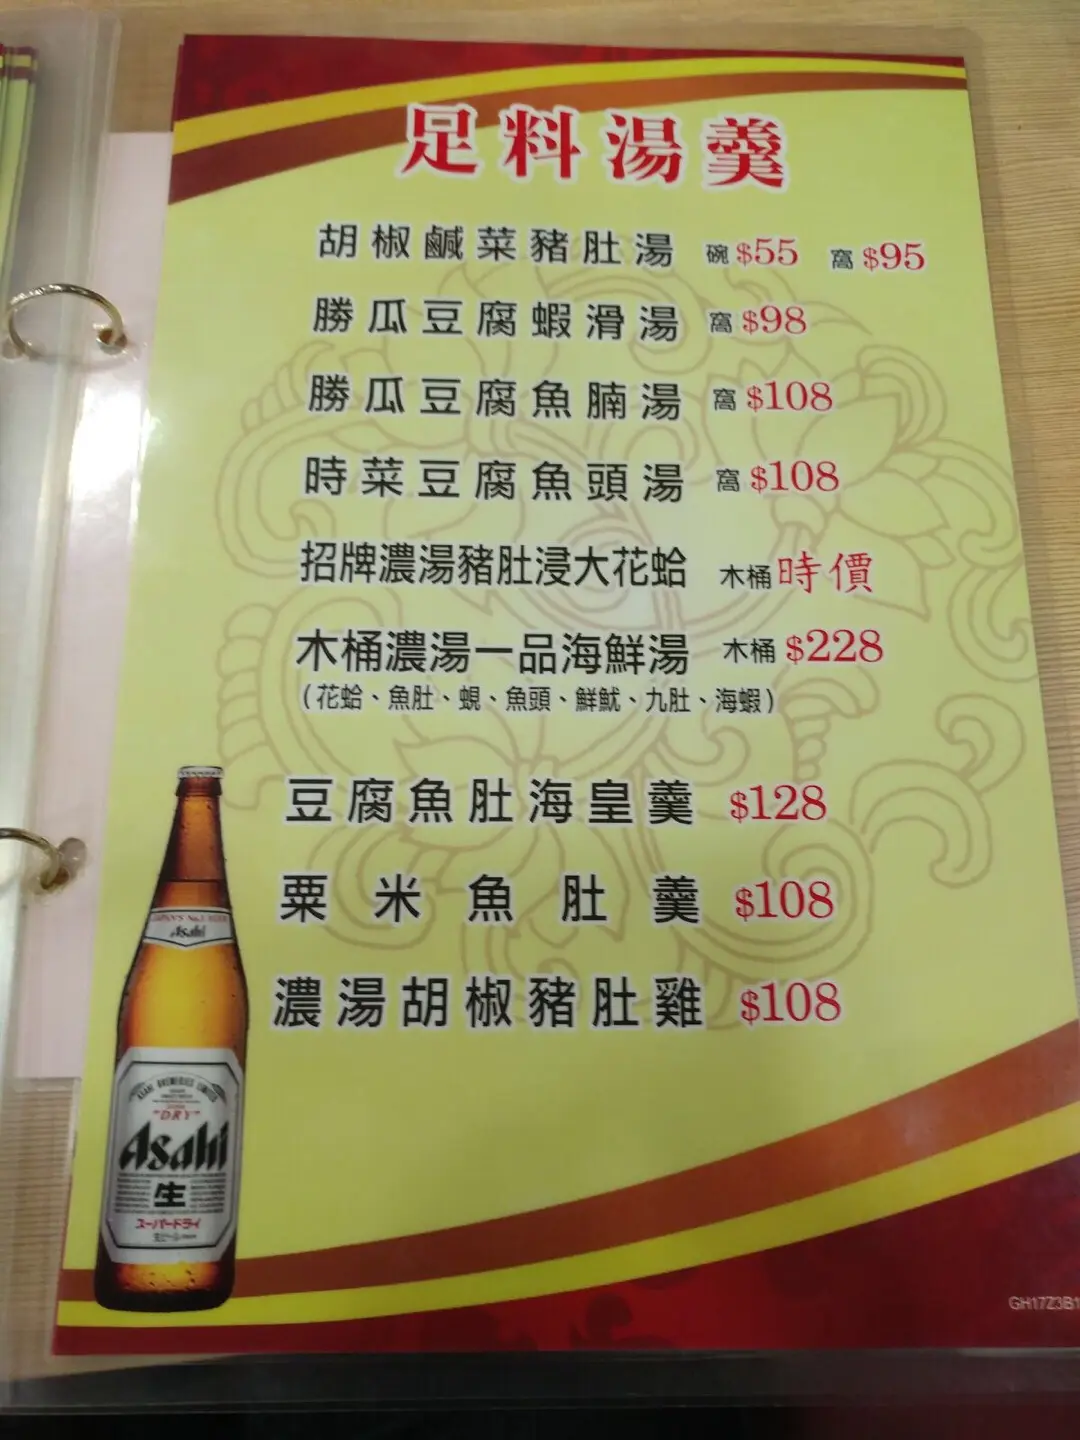 足料湯羹
胡椒鹹菜豬肚湯 碗 $55 窩 $95
勝瓜豆腐蝦滑湯 窩 $98
勝瓜豆腐魚腩湯 窩 $108
時菜豆腐魚頭湯 窩 $108
招牌濃湯豬肚浸大花蛤 木桶 時價
木桶濃湯一品海鮮湯 木桶 $228
(花蛤、魚肚、蜆、魚頭、鮮魷、九肚、海蝦)
豆腐魚肚海皇羹 $128
粟米魚肚羹 $108
濃湯胡椒豬肚雞 $108
JAPAN'S No.1 BEER
Asahi
ASAHI BREWERIES LIMITED
"DRY"
Asahi
生
スーパードライ
GH17Z3B1